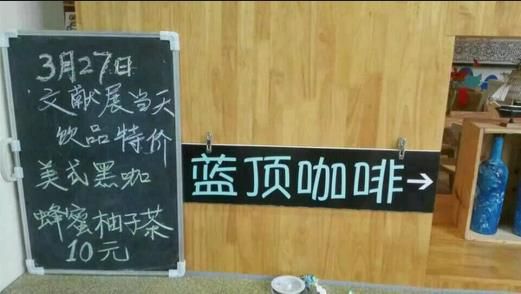 3月27日
文献展当天
饮品特价
美式黑咖
蜂蜜柚子茶
10元
蓝顶咖啡→